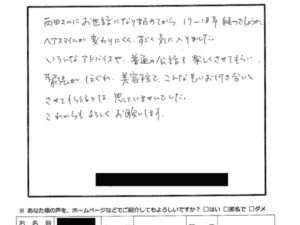 西田さんにお世話になり始めてから 17〜18年 経つでしょうか。
ヘアスタイルが変わりにくく、すごく気に入りました。
いろんなアドバイスや、普通の会話も楽しくさせてもらい、
緊張が ほぐれ、美容院と こんな長いお付き合い
させてもらうとは 思っていませんでした。
これからも よろしく お願いします。
※ あなた様の声を、ホームページなどでご紹介してもよろしいですか? □はい □匿名で □ダメ
お 名 前